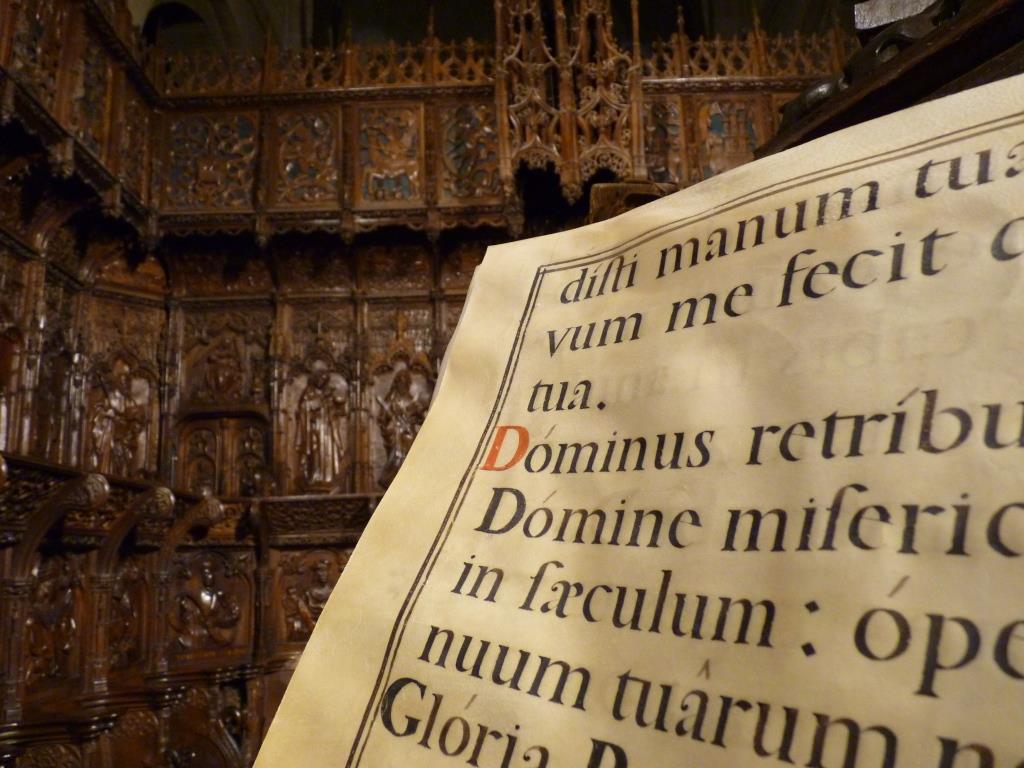 díſti manum
vum me fecit
tua.
Dóminus retríbu
Dómine miſeric
in ſæculum : ópe
nuum tuârum
Glória